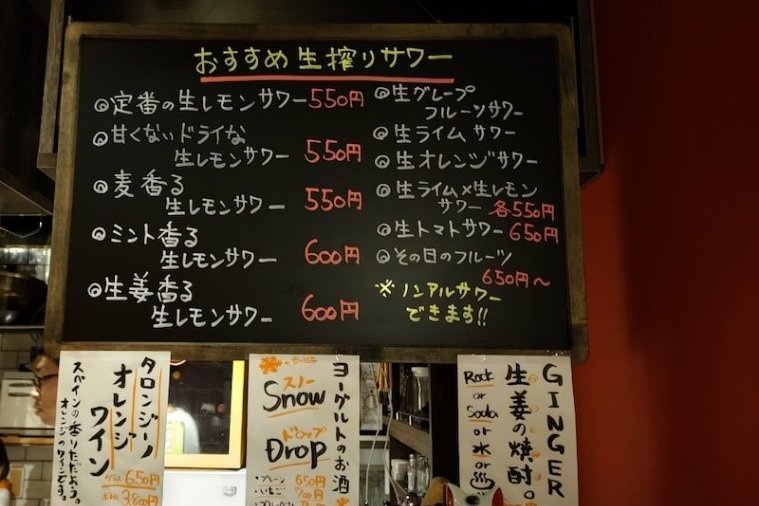 おすすめ生搾りサワー
◎定番の生レモンサワー 550円
◎甘くないドライな
生レモンサワー 550円
◎麦香る
生レモンサワー 550円
◎ミント香る
生レモンサワー 600円
◎生姜香る
生レモンサワー 600円
◎生グレープ
フルーツサワー
◎生ライムサワー
◎生オレンジサワー
◎生ライム×生レモン
サワー 各550円
◎生トマトサワー 650円
◎その日のフルーツ
650円〜
※ノンアルサワー
できます!!
タロンジーノ
オレンジ
ワイン
スペインの香りただよう。
オレンジのワインです。
グラス 650円
3,800円
ヨーグルトのお酒
スノー
Snow
ドロップ
Drop
・プレーン 650円
・いちご 700円
GINGER
生姜の焼酎。
Rock
or
Soda
or
水
or